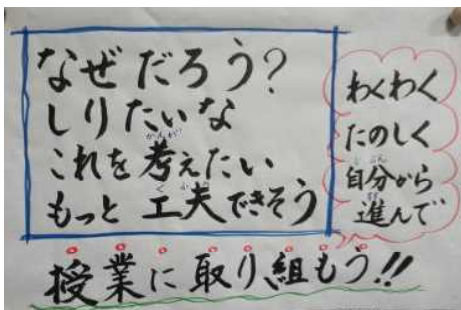 なぜだろう?
しりたいな
これを考えたい
もっと工夫できそう
わくわく
たのしく
自分から
進んで
授業に取り組もう!!